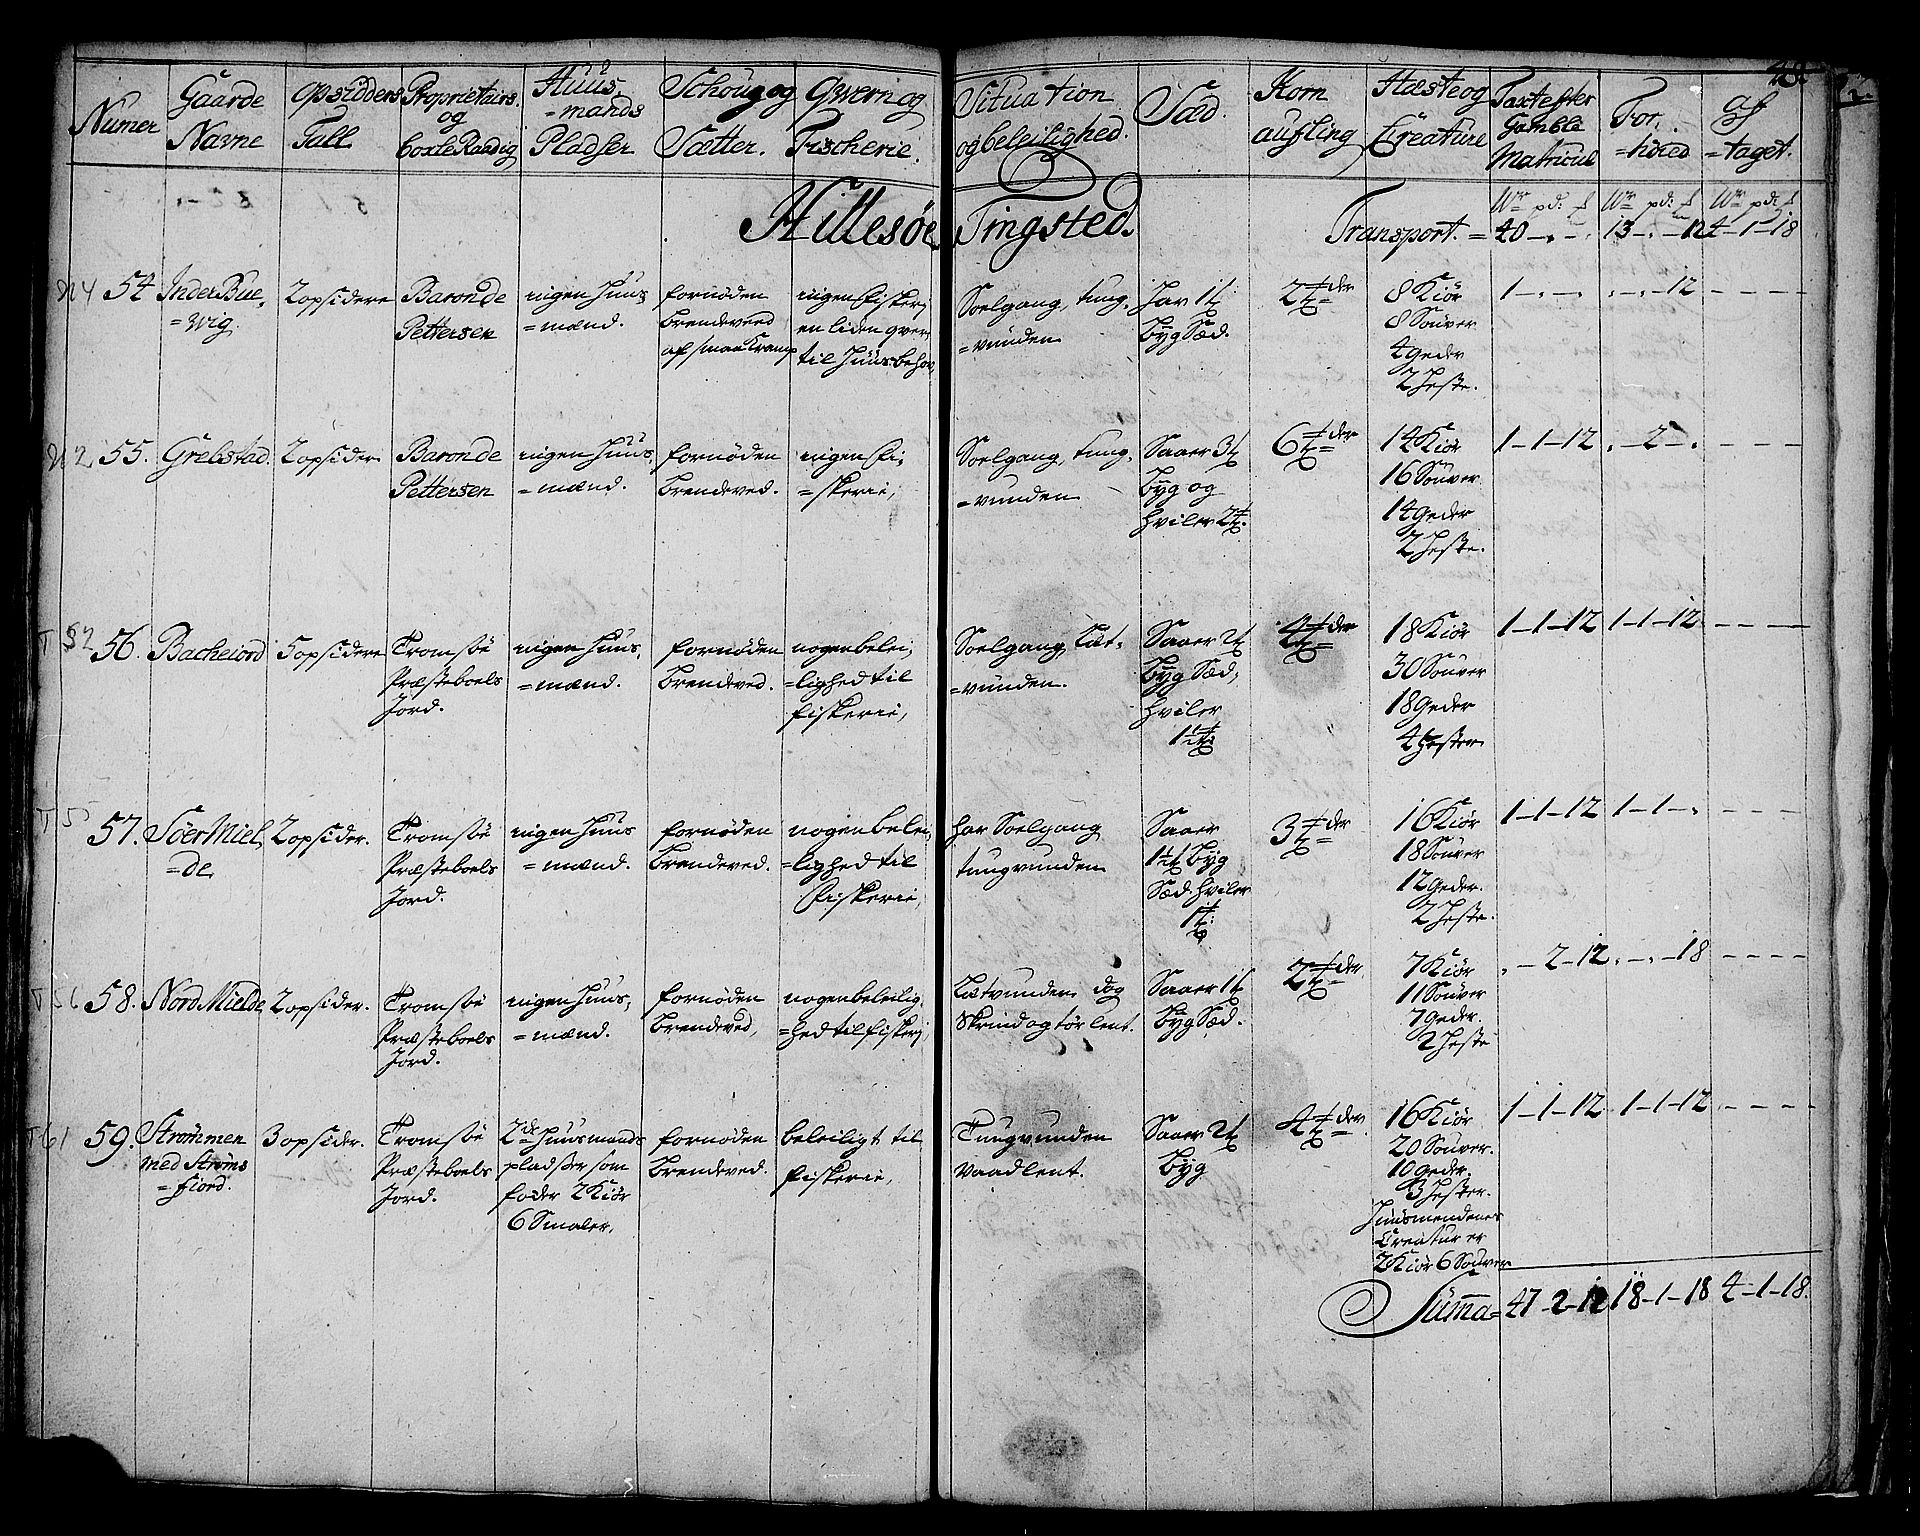 Numer
Gaarde
Navne
Opsidders
Tall
Proprietairs
og
boxle Raadig
Huus
=mands
Pladser
Schoug og
Sætter.
Qvern og
Fischerie.
Situation
og beleilighed.
Sæd.
Korn
aufling
Hæste og
Creature
Taxt efter
Gamble
Matricul
For
=höied
Af
=taget.
Hillesøe Tingsted.
Wr pd: f Wr pd: f Wr pd: f
Transport. = 40 - . - . 13 - . - 12 4 - 1 - 18
54
Inder Bue
=wig.
2 opsidere
Baron de
Pettersen
ingen Huus
=mænd.
fornøden
brendeved
af smaa Kramp
ingen fiskeri
en liden qvern
til Huusbehov,
Soelgang, tung
=vunden
har 1 t
byg Sæd.
2 t der
8 Kiör
8 Souver
4 geder
2 heste.
1 - . - . . - . - 12 - - - -
55.
Grebstad.
2 opsider
Baron de
Pettersen
ingen Huus
=mænd.
fornøden
brendeved.
ingen fi
=skerie,
Soelgang, tung
=vunden
Saaer 3 t
byg og
hviler 2 t.
6 t der
14 Kiör
16 Souver
14 geder
2 heste.
1 - 1 - 12 . - 2 - . - - - -
56.
Bachejord
5 opsidere
Tromsöe
Præsteboels
Jord.
ingen Huus
=mænd.
fornøden
brendeved.
nogen belei
=lighed til
fiskerie,
Soelgang, Læt
=vunden.
Saaer 2 t
byg Sæd,
hviler
1½ t
4 t der
18 Kiör
30 Souver
18 geder
4 hester
1 - 1 - 12 1 - 1 - 12 - - - -
57.
Söer Miel
=de
2 opsider.
Tromsöe
Præsteboels
Jord.
ingen Huus
=mænd.
fornøden
brendeved.
nogen belei
=lighed til
fiskerie,
har Soelgang
tungvunden
Saaer
1½ t byg
Sæd. hviler
1 t:
3 t der
16 Kiör
18 Souver
12 geder.
2 heste.
1 - 1 - 12 1 - 1 - . - - - -
58.
Nord Mielde
2 opsider.
Tromsöe
Præsteboels
Jord.
ingen Huus
=mænd.
fornøden
brendeved,
nogen beleilig
=hed til fiskeri,
Lætvunden dog
Skrind og tör lent.
Saaer 1 t
byg Sæd.
2 t der
7 Kiör
11 Souver
7 geder.
2 heste
. - 2 - 12 . - . - 18 - - - -
59.
Strømmen
med Strøms
=fiord.
3 opsider.
Tromsöe
Præsteboels
Jord.
2de Huusmands
pladser som
foder 2 Kiör
6 Smaler,
fornøden
brendeved.
beleiligt til
fiskerie,
Tungvunden
Vaadlent.
Saaer 2 t
byg
4 t der
16 Kiör
20 Souver.
10 geder.
3 hester.
Huusmendenes
Creatur er
2 Kiör 6 Souver
1 - 1 - 12 1 - 1 - 12 - - - -
Summa = 47 - 2 - 12 18 - 1 - 18 4 - 1 - 18.